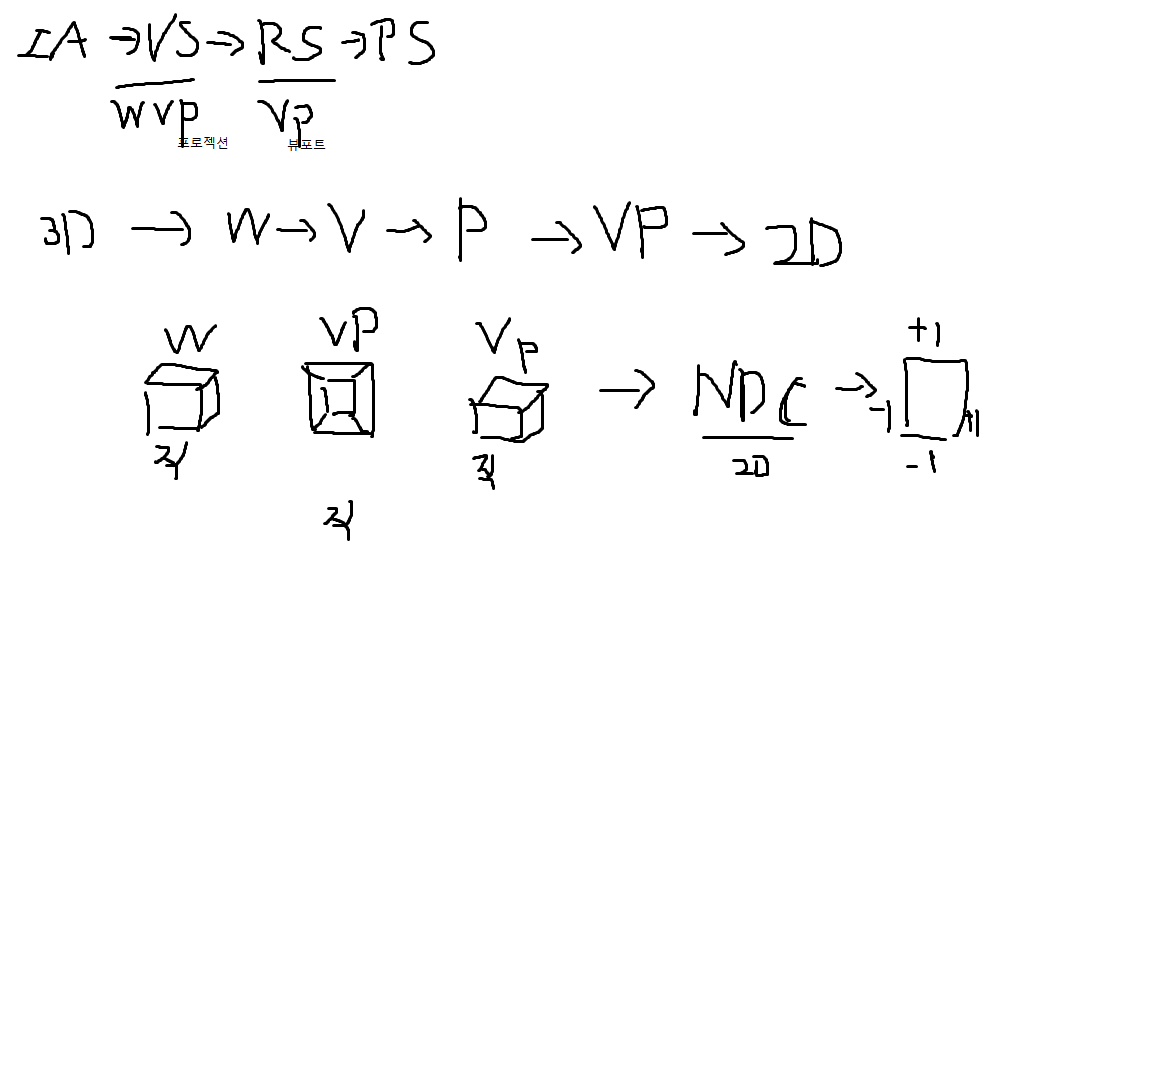 IA → VS → RS → PS
WVP VP
프로젝션 뷰포트
3D → W → V → P → VP → 2D
W VP VP +1
→ NDC → -1 +1
직 직 2D -1
직